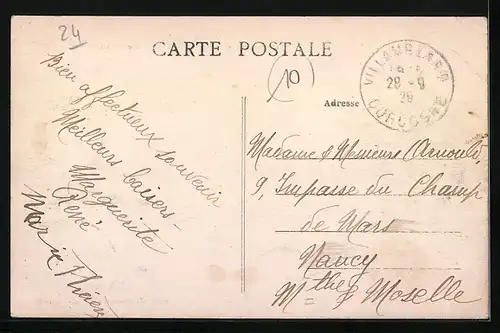 24
CARTE POSTALE
10
Adresse
VILLAMBLARD
28 - 9
DORDOGNE
Bien affectueux souvenir
Meilleurs baisers -
Marguerite
René
Marie Thérèse
Madame & Monsieur Arnould
9, Impasse du Champ
de Mars
Nancy
Mthe & Moselle